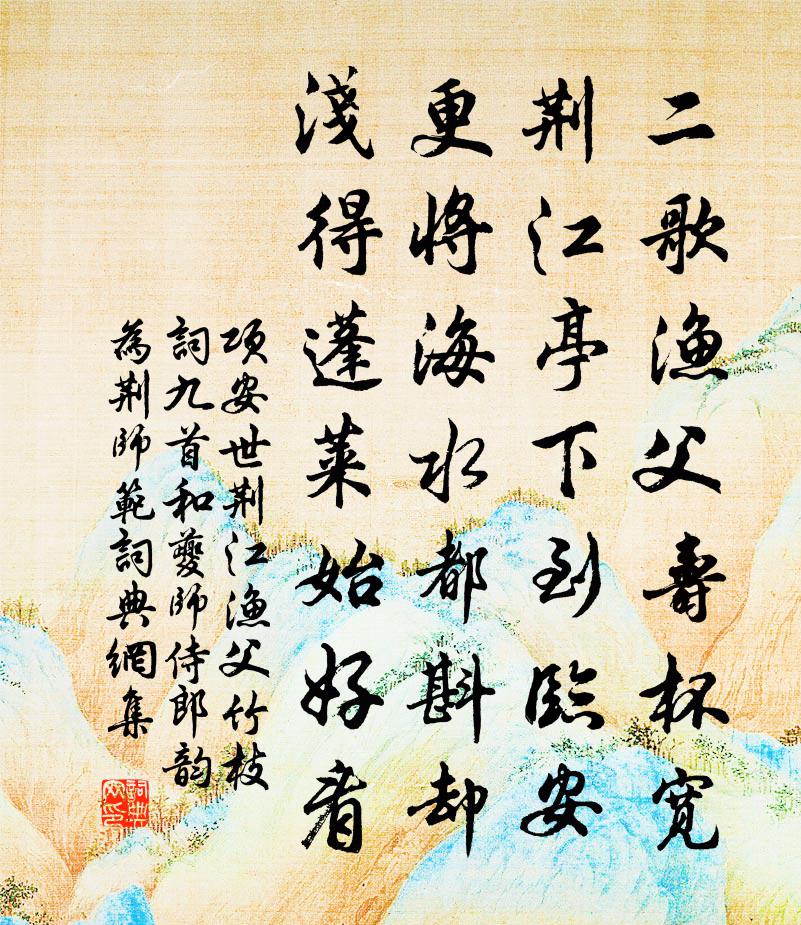 二歌漁父壽杯寬
荆江亭下到臨安
更將海水都斟却
淺得蓬萊始好看
項安世荆江漁父竹枝
詞九首和夔師侍郎韵
為荆師範詞典網集
詞典